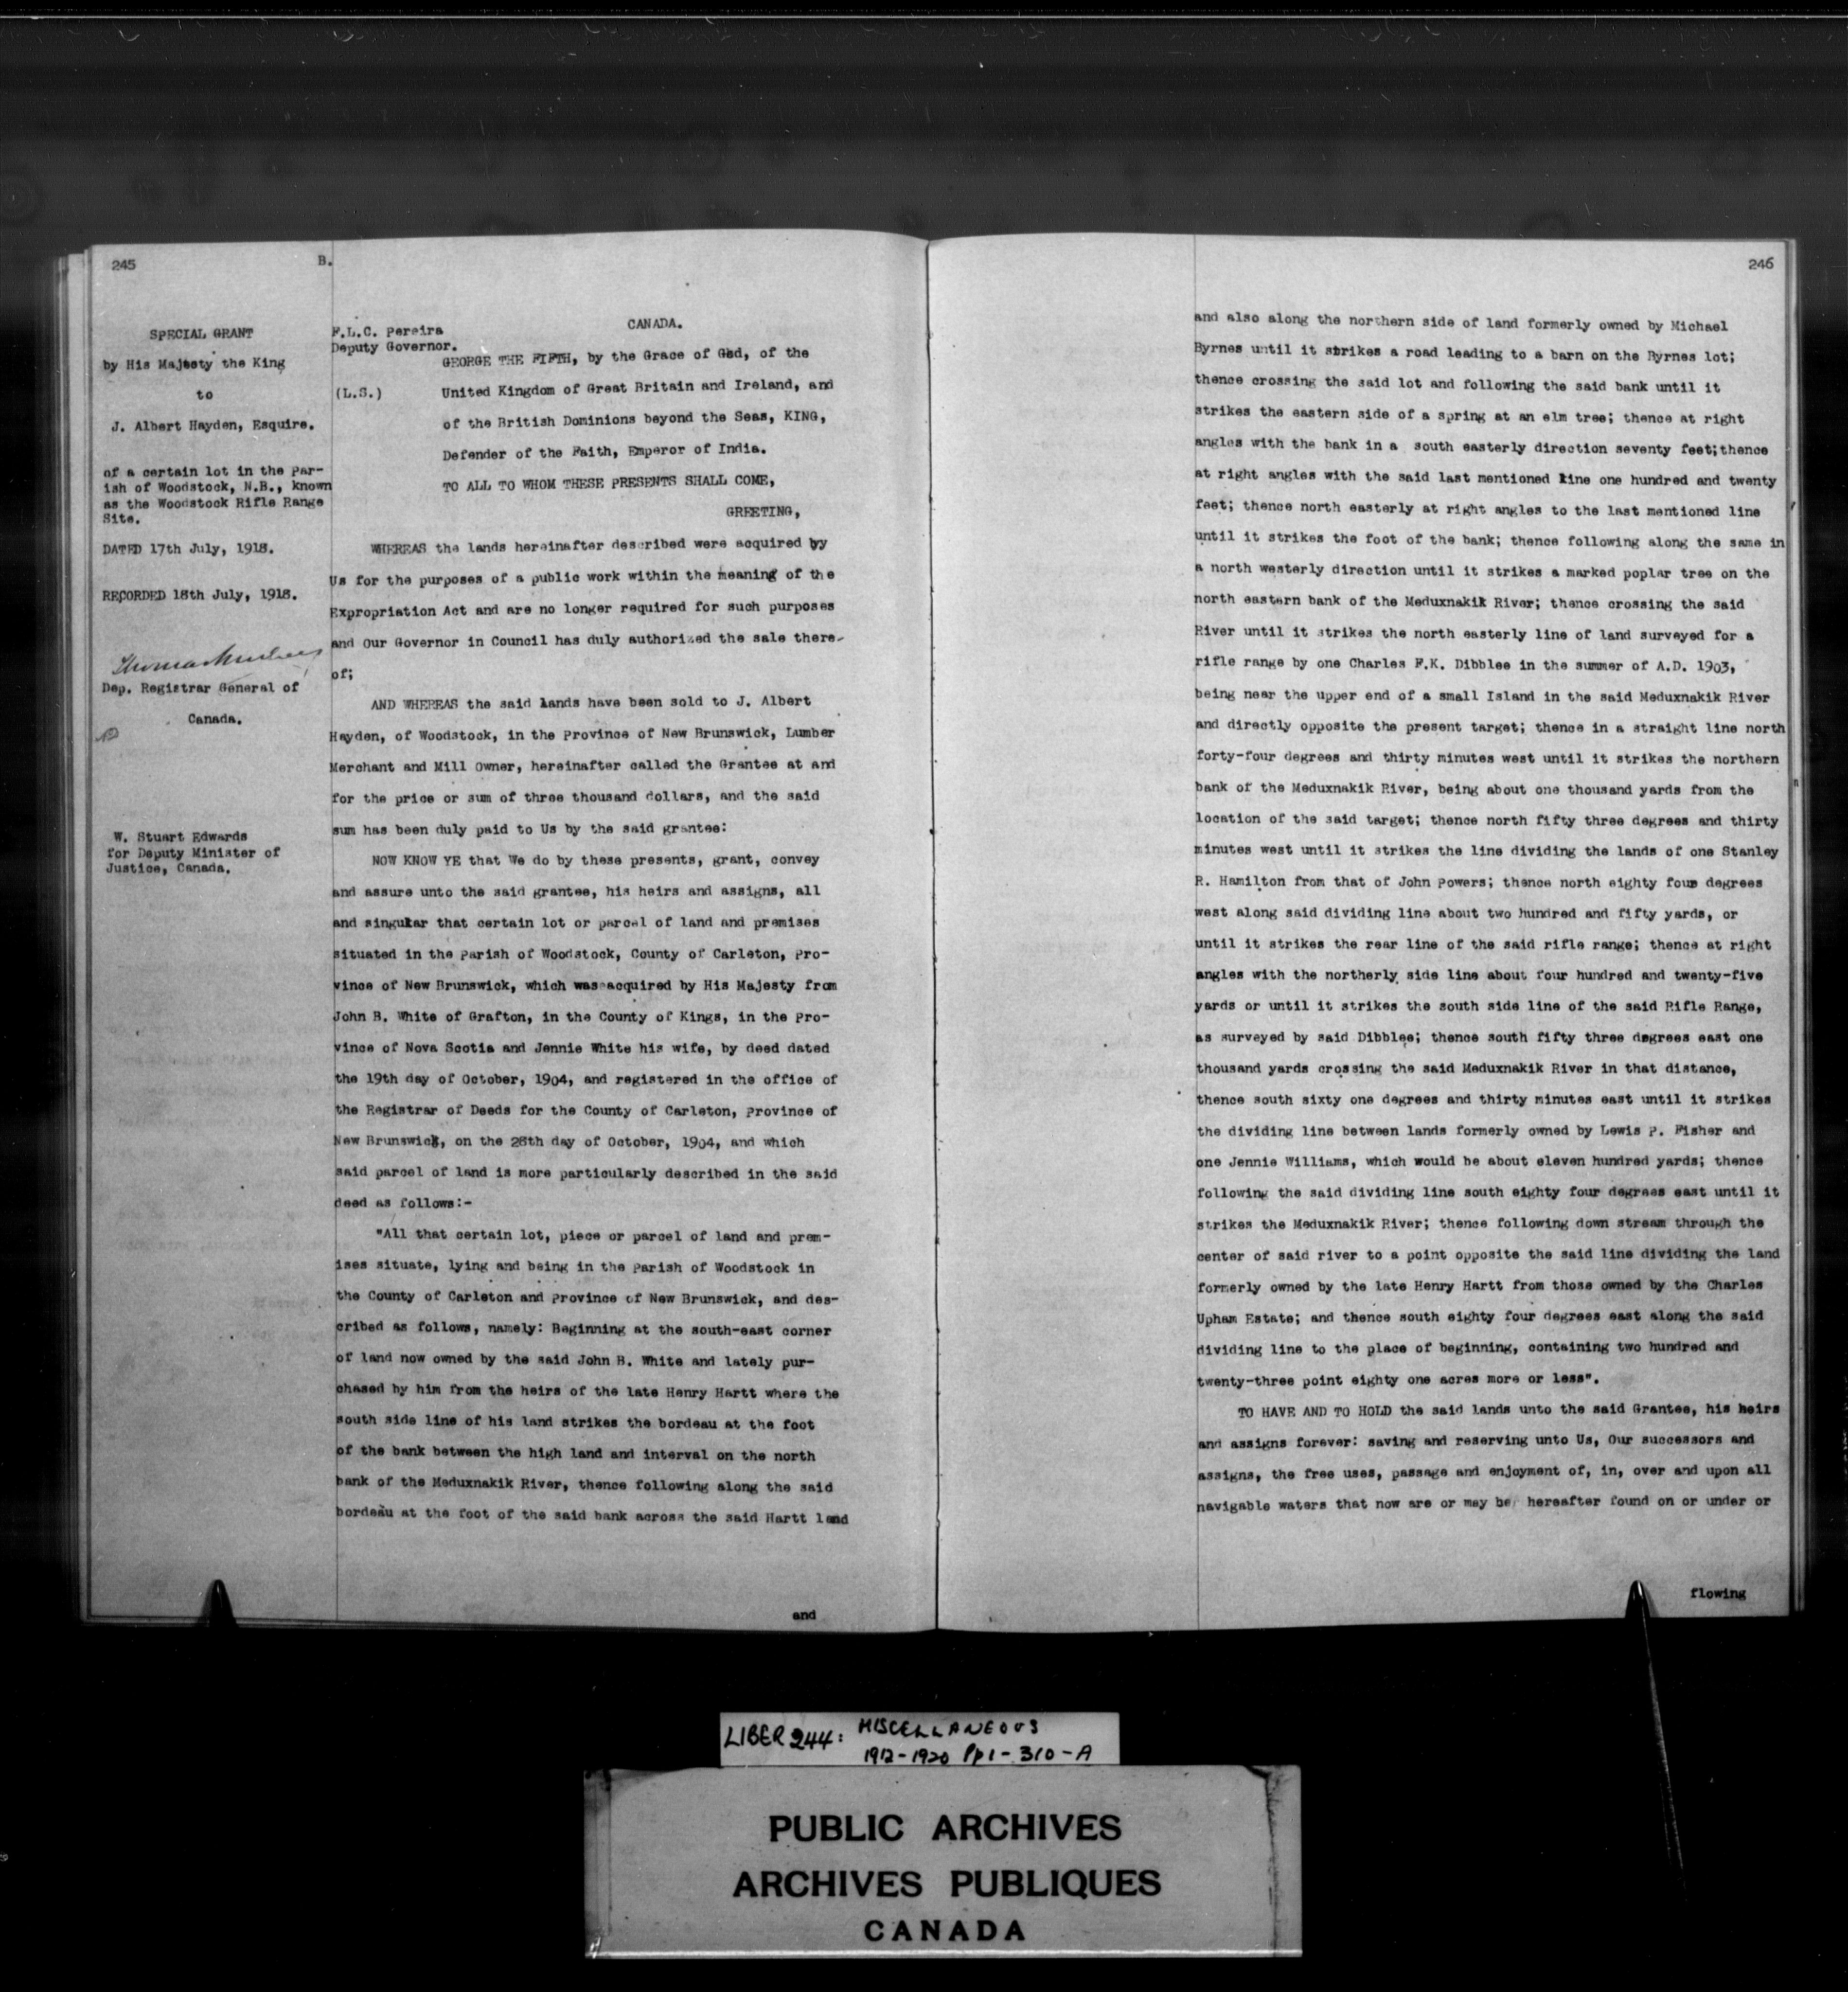 245
B.
SPECIAL GRANT
by His Majesty the King
to
J. Albert Hayden, Esquire.
of a certain lot in the Par-
ish of Woodstock, N.B., known
as the Woodstock Rifle Range
Site.
DATED 17th July, 1918.
RECORDED 18th July, 1918.
Dep. Registrar General of
Canada.
W. Stuart Edwards
for Deputy Minister of
Justice, Canada.
F.L.C. Pereira
Deputy Governor.
(L.S.)
CANADA.
GEORGE THE FIFTH, by the Grace of God, of the
United Kingdom of Great Britain and Ireland, and
of the British Dominions beyond the Seas, KING,
Defender of the Faith, Emperor of India.
TO ALL TO WHOM THESE PRESENTS SHALL COME,
GREETING,
WHEREAS the lands hereinafter described were acquired by
Us for the purposes of a public work within the meaning of the
Expropriation Act and are no longer required for such purposes
and Our Governor in Council has duly authorized the sale there-
of;
AND WHEREAS the said lands have been sold to J. Albert
Hayden, of Woodstock, in the Province of New Brunswick, Lumber
Merchant and Mill Owner, hereinafter called the Grantee at and
for the price or sum of three thousand dollars, and the said
sum has been duly paid to Us by the said grantee:
NOW KNOW YE that We do by these presents, grant, convey
and assure unto the said grantee, his heirs and assigns, all
and singular that certain lot or parcel of land and premises
situated in the Parish of Woodstock, County of Carleton, Pro-
vince of New Brunswick, which was acquired by His Majesty from
John B. White of Grafton, in the County of Kings, in the Pro-
vince of Nova Scotia and Jennie White his wife, by deed dated
the 19th day of October, 1904, and registered in the office of
the Registrar of Deeds for the County of Carleton, Province of
New Brunswick, on the 28th day of October, 1904, and which
said parcel of land is more particularly described in the said
deed as follows:-
"All that certain lot, piece or parcel of land and prem-
ises situate, lying and being in the Parish of Woodstock in
the County of Carleton and Province of New Brunswick, and des-
cribed as follows, namely: Beginning at the south-east corner
of land now owned by the said John B. White and lately pur-
chased by him from the heirs of the late Henry Hartt where the
south side line of his land strikes the bordeau at the foot
of the bank between the high land and interval on the north
bank of the Meduxnakik River, thence following along the said
bordeau at the foot of the said bank across the said Hartt land
and
246
and also along the northern side of land formerly owned by Michael
Byrnes until it strikes a road leading to a barn on the Byrnes lot;
thence crossing the said lot and following the said bank until it
strikes the eastern side of a spring at an elm tree; thence at right
angles with the bank in a south easterly direction seventy feet;thence
at right angles with the said last mentioned line one hundred and twenty
feet; thence north easterly at right angles to the last mentioned line
until it strikes the foot of the bank; thence following along the same in
a north westerly direction until it strikes a marked poplar tree on the
north eastern bank of the Meduxnakik River; thence crossing the said
River until it strikes the north easterly line of land surveyed for a
rifle range by one Charles F.K. Dibblee in the summer of A.D. 1903,
being near the upper end of a small Island in the said Meduxnakik River
and directly opposite the present target; thence in a straight line north
forty-four degrees and thirty minutes west until it strikes the northern
bank of the Meduxnakik River, being about one thousand yards from the
location of the said target; thence north fifty three degrees and thirty
minutes west until it strikes the line dividing the lands of one Stanley
R. Hamilton from that of John Powers; thence north eighty four degrees
west along said dividing line about two hundred and fifty yards, or
until it strikes the rear line of the said rifle range; thence at right
angles with the northerly side line about four hundred and twenty-five
yards or until it strikes the south side line of the said Rifle Range,
as surveyed by said Dibblee; thence south fifty three degrees east one
thousand yards crossing the said Meduxnakik River in that distance,
thence south sixty one degrees and thirty minutes east until it strikes
the dividing line between lands formerly owned by Lewis P. Fisher and
one Jennie Williams, which would be about eleven hundred yards; thence
following the said dividing line south eighty four degrees east until it
strikes the Meduxnakik River; thence following down stream through the
center of said river to a point opposite the said line dividing the land
formerly owned by the late Henry Hartt from those owned by the Charles
Upham Estate; and thence south eighty four degrees east along the said
dividing line to the place of beginning, containing two hundred and
twenty-three point eighty one acres more or less".
TO HAVE AND TO HOLD the said lands unto the said Grantee, his heirs
and assigns forever: saving and reserving unto Us, Our successors and
assigns, the free uses, passage and enjoyment of, in, over and upon all
navigable waters that now are or may be hereafter found on or under or
flowing
LIBER 244: MISCELLANEOUS
1912-1920 Pp 1-310-A
PUBLIC ARCHIVES
ARCHIVES PUBLIQUES
CANADA